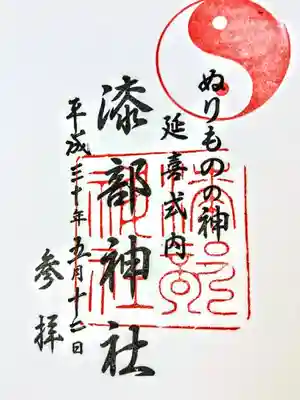 ぬりものの神
延喜式内
漆部神社
平成三十年五月十二日
参拝